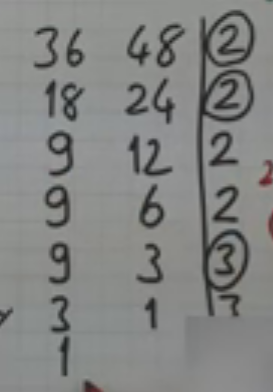 36 48 2
18 24 2
9 12 2
9 6 2
9 3 3
3 1 3
1